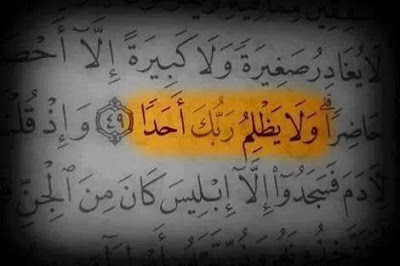 لَا يُغَادِرُ صَغِيرَةً وَلَا كَبِيرَةً إِلَّآ أَحْصَ
حَاضِرًا ۗ وَلَا يَظْلِمُ رَبُّكَ أَحَدًا ٤٩ وَإِذْ قُلْنَا
لِأَدَمَ فَسَجَدُوٓا۟ إِلَّآ إِبْلِيسَ كَانَ مِنَ ٱلْجِنِّ